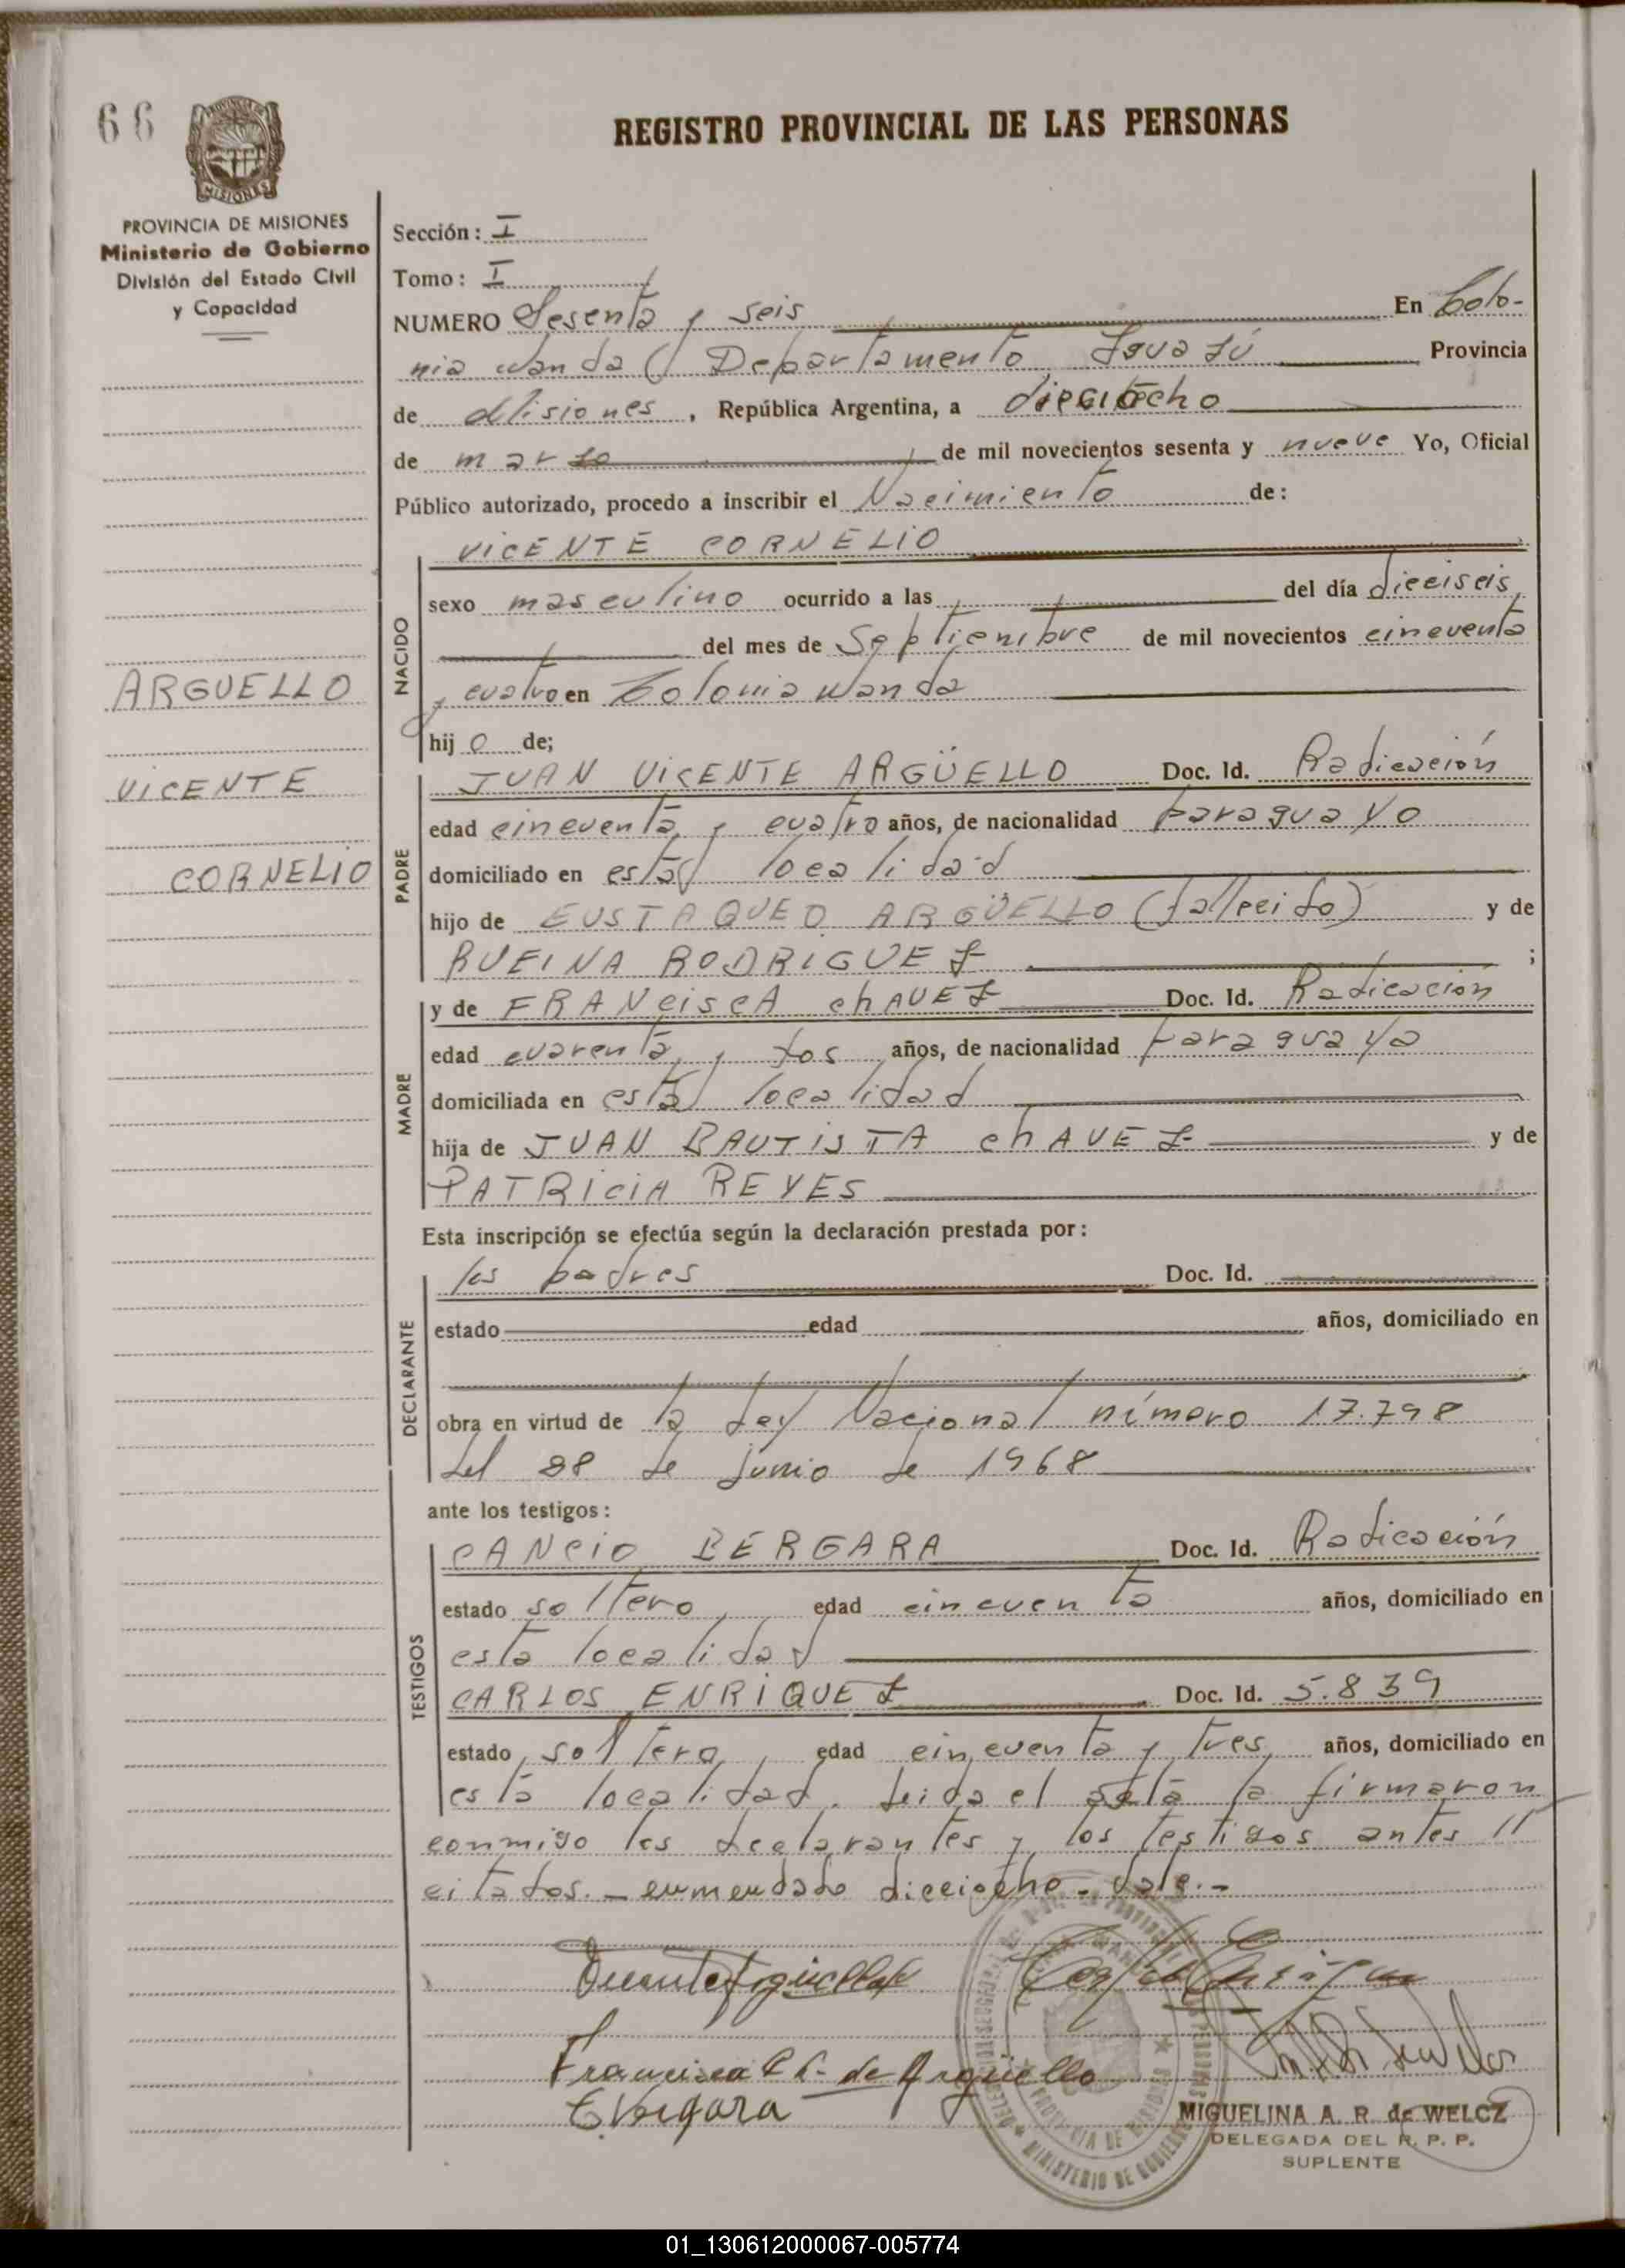 66
PROVINCIA DE MISIONES
Ministerio de Gobierno
División del Estado Civil
y Capacidad
ARGUELLO
VICENTE
CORNELIO
REGISTRO PROVINCIAL DE LAS PERSONAS
Sección: I
Tomo: I
NUMERO Sesenta y seis En Colo-
nia Wanda Departamento Iguazú Provincia
de Misiones, República Argentina, a dieciocho
de marzo de mil novecientos sesenta y nueve Yo, Oficial
Público autorizado, procedo a inscribir el Nacimiento de:
NACIDO
VICENTE CORNELIO
sexo masculino ocurrido a las del día dieciseis
del mes de Septiembre de mil novecientos cincuenta
y cuatro en Colonia Wanda
hijo de;
PADRE
JUAN VICENTE ARGÜELLO Doc. Id. Radicación
edad cincuenta y cuatro años, de nacionalidad paraguayo
domiciliado en esta localidad
hijo de EUSTAQUEO ARGÜELLO (fallecido) y de
RUFINA RODRIGUEZ ;
MADRE
y de FRANciscA chAVEZ Doc. Id. Radicación
edad cuarenta y dos años, de nacionalidad paraguaya
domiciliada en esta localidad
hija de JUAN BAUTISTA chAVEZ y de
PATRICIA REYES
Esta inscripción se efectúa según la declaración prestada por:
DECLARANTE
los padres Doc. Id.
estado edad años, domiciliado en
obra en virtud de la Ley Nacional número 17.798
del 28 de junio de 1968
ante los testigos:
TESTIGOS
CANCIO BERGARA Doc. Id. Radicación
estado soltero edad cincuenta años, domiciliado en
esta localidad
CARLOS ENRIQUEZ Doc. Id. 5.839
estado soltero, edad cincuenta y tres, años, domiciliado en
esta localidad. Leida el acta la firmaron
conmigo los declarantes y los testigos antes //
citados. - enmendado dieciocho - vale. -
Francisca Ch. de Argüello
C. Vergara
MIGUELINA A. R. de WELCZ
DELEGADA DEL R. P. P.
SUPLENTE
PROVINCIA DE MISIONES
MINISTERIO DE GOBIERNO
01_130612000067-005774